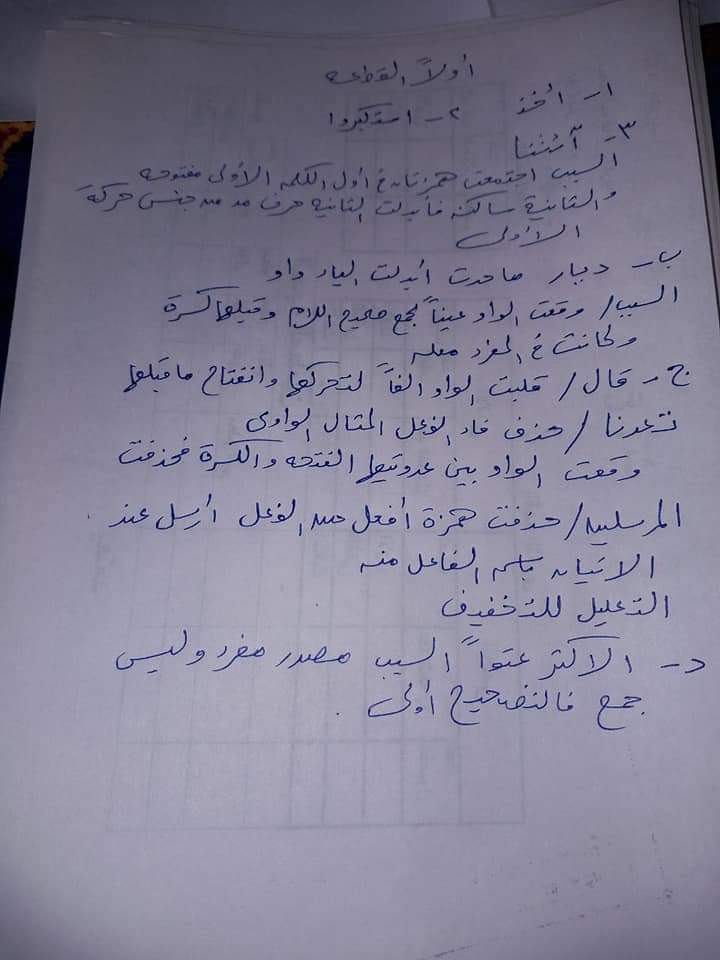 أولاً القطعة
١- أخذ ٢- استكبروا
٣- آئتنا
السبب اجتمعت همزتان في أول الكلمة الأولى مفتوحه
والثانية ساكنه فأبدلت الثانية حرف مد من جنس حركة
الأولى
ب- ديار حدث أبدلت الياء واو
السبب/ وقعت الواو عيناً لجمع صحيح اللام وقبلها كسرة
وكانت في المفرد معله
ج- قال/ قلبت الواو الفاً لتحركها وانفتاح ما قبلها
تعدنا/ حذف فاء الفعل المثال الواوى
وقعت الواو بين عدوتيها الفتحه والكسرة فحذفت
المرسلين/ حذفت همزة أفعل من الفعل أرسل عند
الاتيان باسم الفاعل منه
التعليل للتخفيف
د- الاكثر عتواً السبب مصدر مفرد وليس
جمع فالتصحيح أولى.